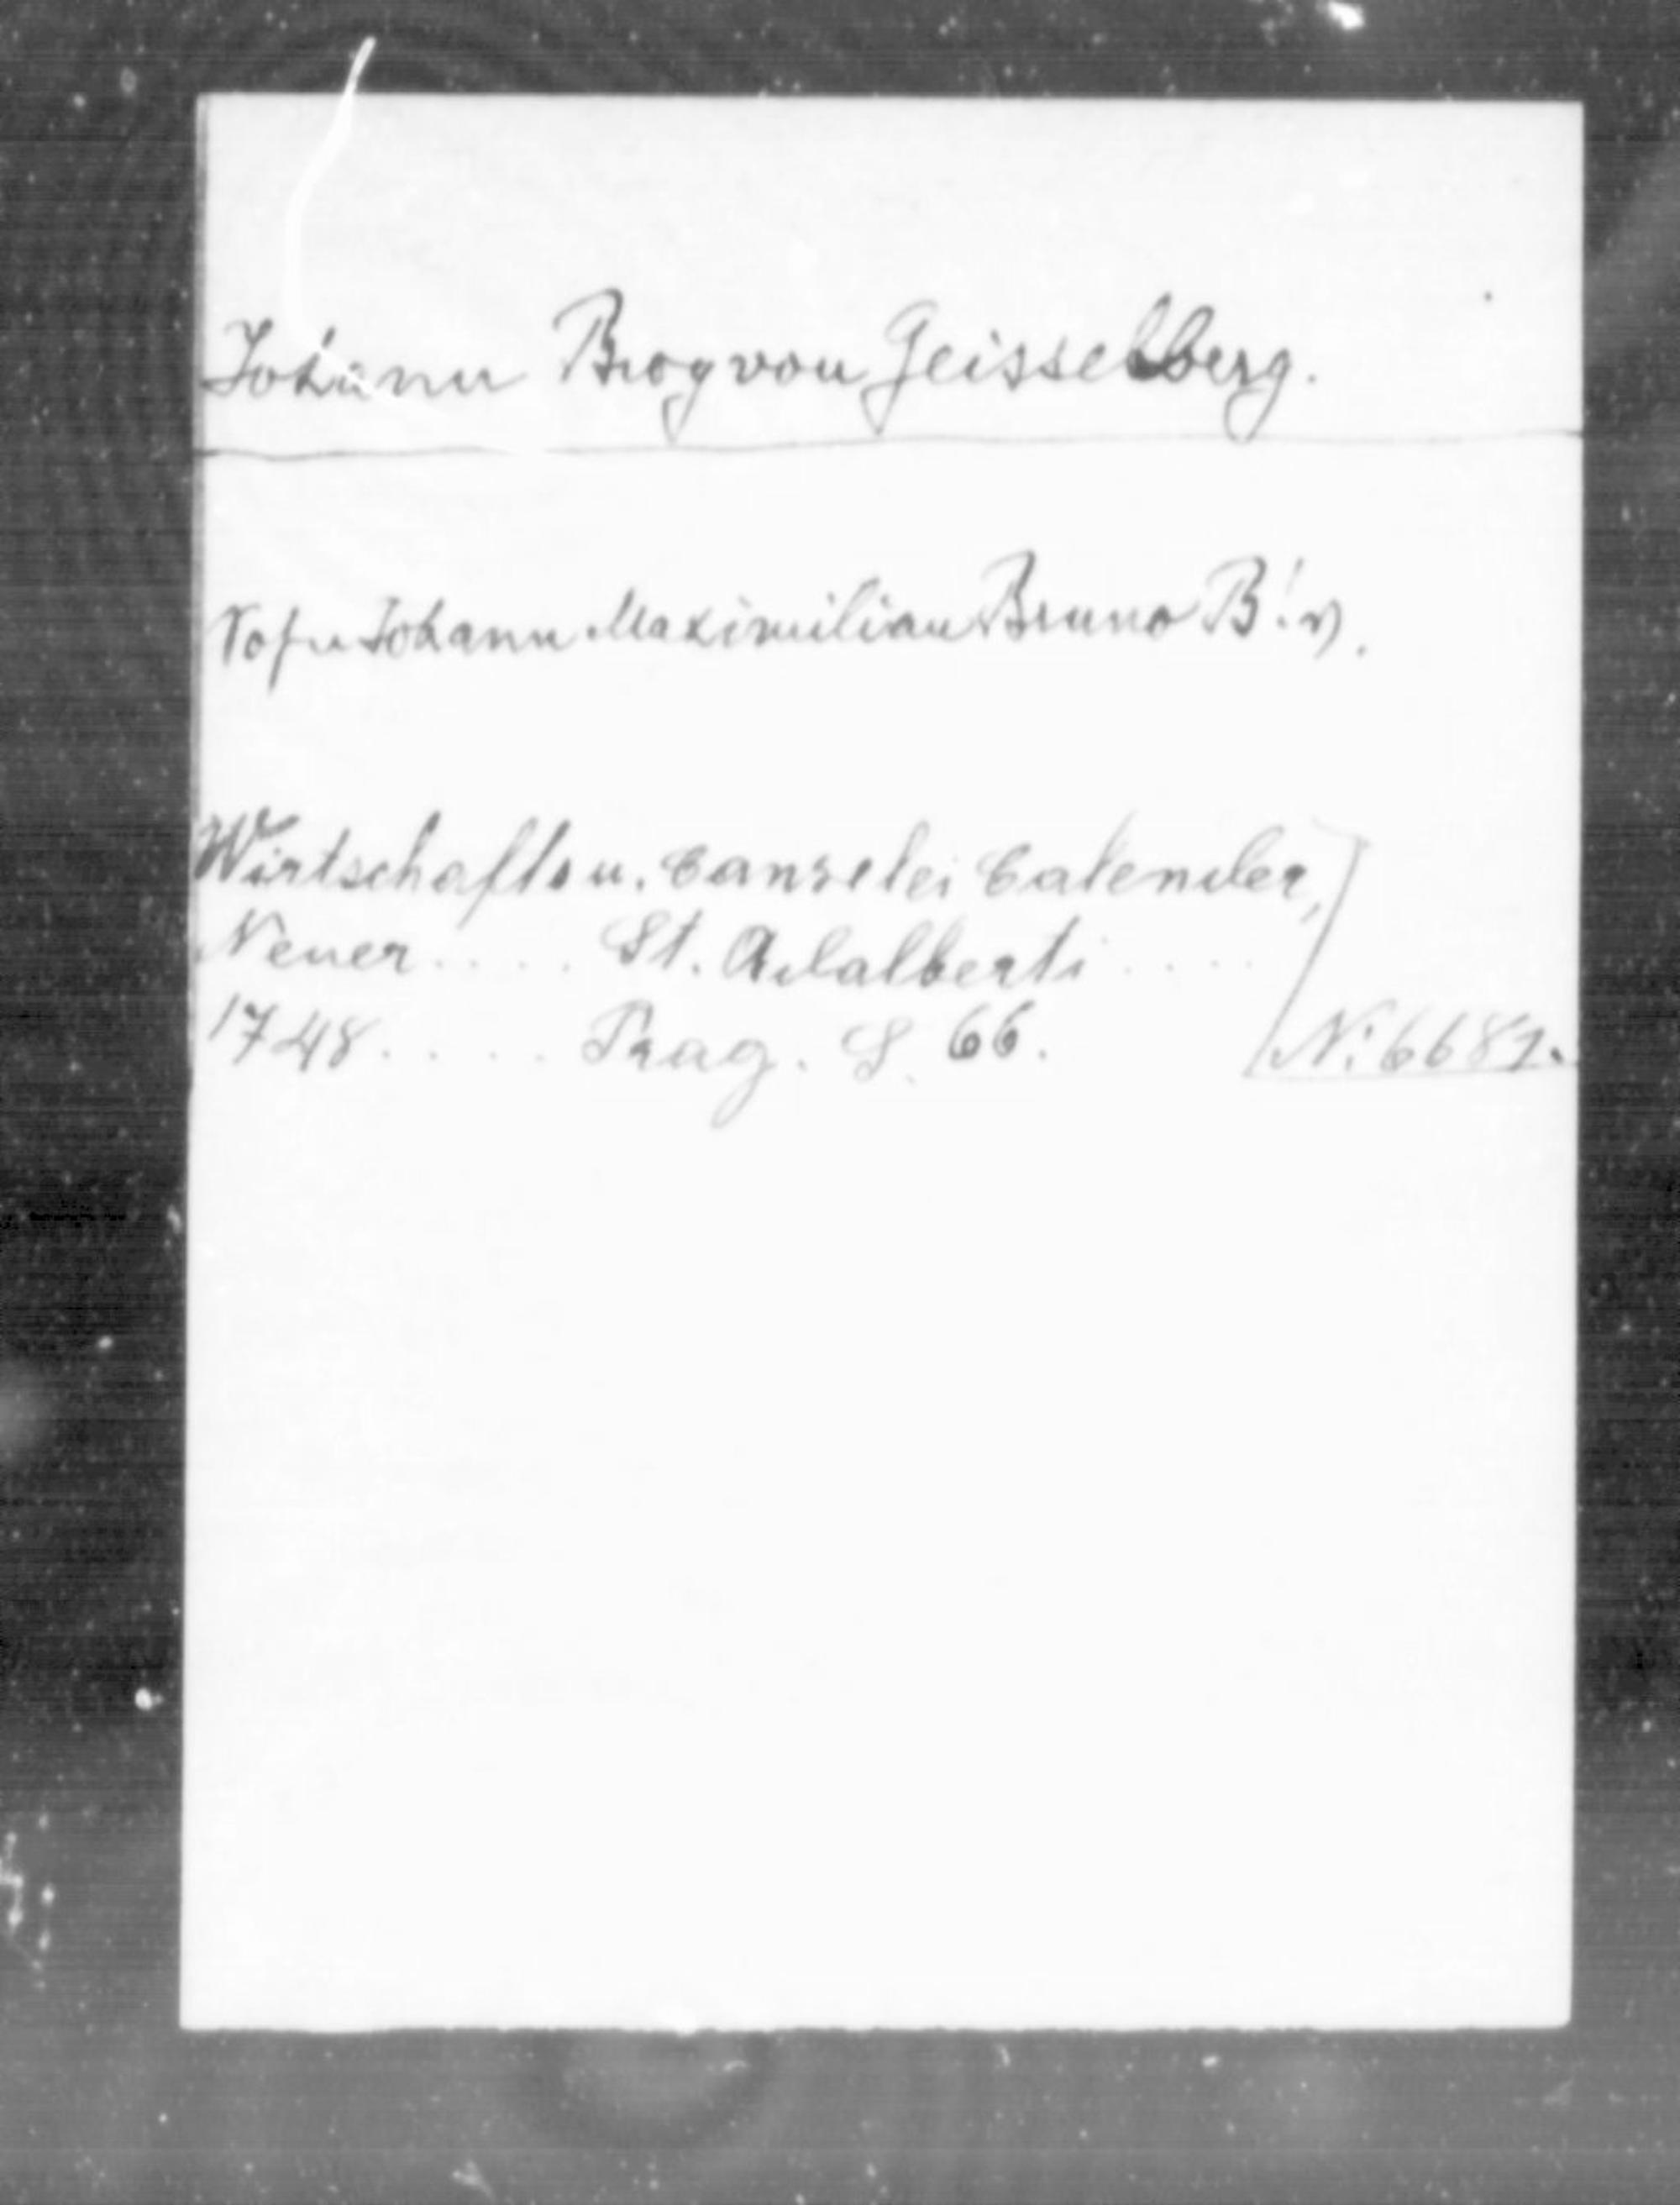 Johann Brog von Geisselberg.
Johann Maximilian Bruno B! v.
Wirtschafts u. Canzelei Calender,
Neuer .... St. Adalberti ....
1748 .... Prag. S. 66.
N: 6681.